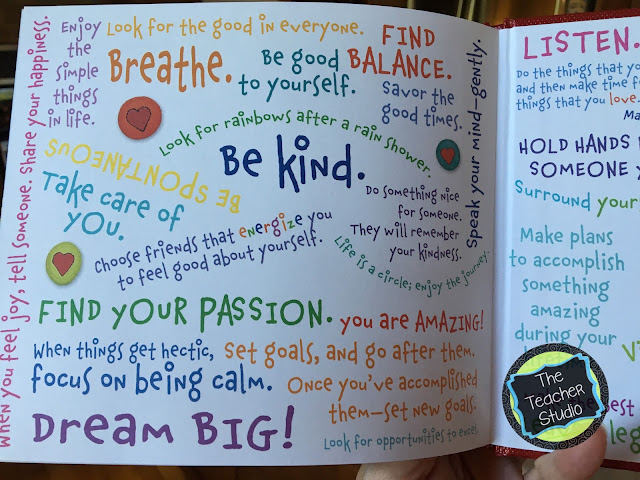 When you feel joy, tell someone. Share your happiness.
Enjoy
the
simple
things
in life.
Look for the good in everyone.
Breathe.
Be good
to yourself.
FIND
BALANCE.
Savor the
good times.
Speak your mind—gently.
Look for rainbows after a rain shower.
Be kind.
BE SPONTANEOUS
Take care of
YOU.
Do something nice
for someone.
They will remember
your kindness.
Choose friends that energize you
to feel good about yourself.
Life is a circle; enjoy the journey.
FIND YOUR PASSION.
you are AMAZING!
When things get hectic,
focus on being calm.
Set goals, and go after them.
Once you've accomplished
them—set new goals.
DREAM BIG!
Look for opportunities to excel.
LISTEN.
Do the things that yo
and then make time f
things that you love.
Ma
HOLD HANDS
SOMEONE
Surround your
Make plans
to accomplish
something
amazing
during your
The
Teacher
Studio
est
leg